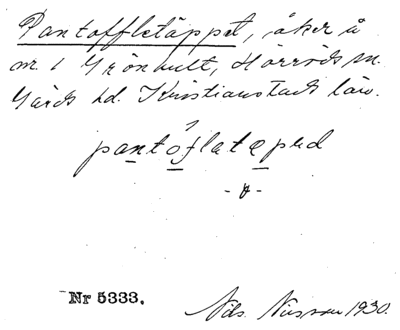 Pantoffletäppet, åker å
nr. 1 Grönhult, Hörröds sn.
Gärds hd. Kristianstads län.
pantǫ́flatępəd
Nr 5333.
Nils Nilsson 1930.